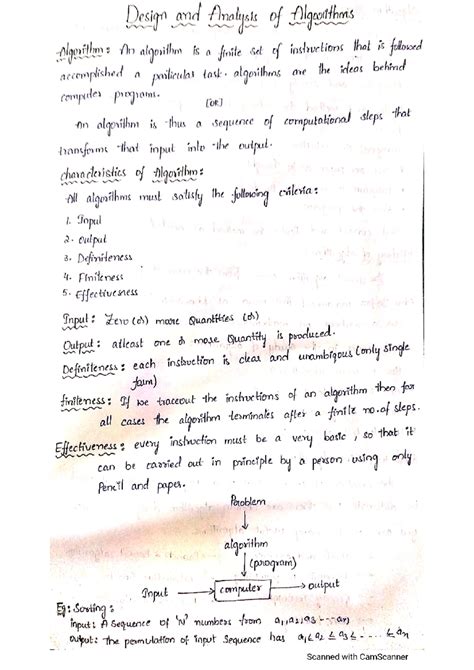 Design and Analysis of Algorithms
Algorithm: An algorithm is a finite set of instructions that is followed
accomplished a particular task. algorithms are the ideas behind
computer programs.
[OR]
An algorithm is thus a sequence of computational steps that
transforms that input into the output.
characteristics of Algorithm:
All algorithms must satisfy the following criteria:
1. Input
2. output
3. Definiteness
4. Finiteness
5. Effectiveness
Input: Zero (or) more Quantities (or)
Output: atleast one or more Quantity is produced.
Definiteness: each instruction is clear and unambigous (only single
form)
finiteness: If we traceout the instructions of an algorithm then for
all cases the algorithm terminates after a finite no.of steps.
Effectiveness: every instruction must be a very basic, so that it
can be carried out in principle by a person using only
Pencil and paper.
Problem
algorithm
(program)
Input computer output
Eg: Sorting:
input: A sequence of 'N' numbers from a1,a2,a3---an
output: the permutation of input Sequence has a1 ≤ a2 ≤ a3 ≤ .... ≤ an
Scanned with CamScanner